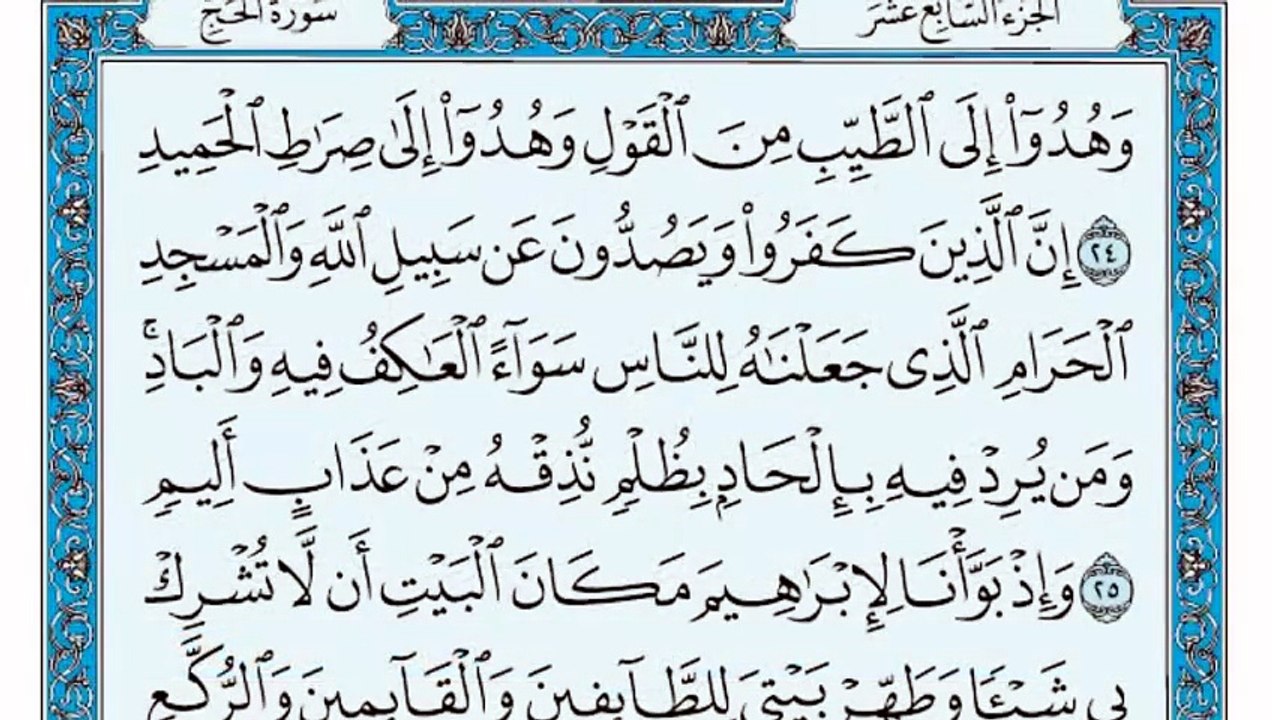 الجزء السابع عشر
سورة الحج
وَهُدُوٓا۟ إِلَى ٱلطَّيِّبِ مِنَ ٱلْقَوْلِ وَهُدُوٓا۟ إِلَىٰ صِرَٰطِ ٱلْحَمِيدِ
٢٤ إِنَّ ٱلَّذِينَ كَفَرُوا۟ وَيَصُدُّونَ عَن سَبِيلِ ٱللَّهِ وَٱلْمَسْجِدِ
ٱلْحَرَامِ ٱلَّذِى جَعَلْنَٰهُ لِلنَّاسِ سَوَآءً ٱلْعَٰكِفُ فِيهِ وَٱلْبَادِ ۚ
وَمَن يُرِدْ فِيهِ بِإِلْحَادٍۭ بِظُلْمٍ نُّذِقْهُ مِنْ عَذَابٍ أَلِيمٍ
٢٥ وَإِذْ بَوَّأْنَا لِإِبْرَٰهِيمَ مَكَانَ ٱلْبَيْتِ أَن لَّا تُشْرِكْ
بِى شَيْـًٔا وَطَهِّرْ بَيْتِىَ لِلطَّآئِفِينَ وَٱلْقَآئِمِينَ وَٱلرُّكَّعِ